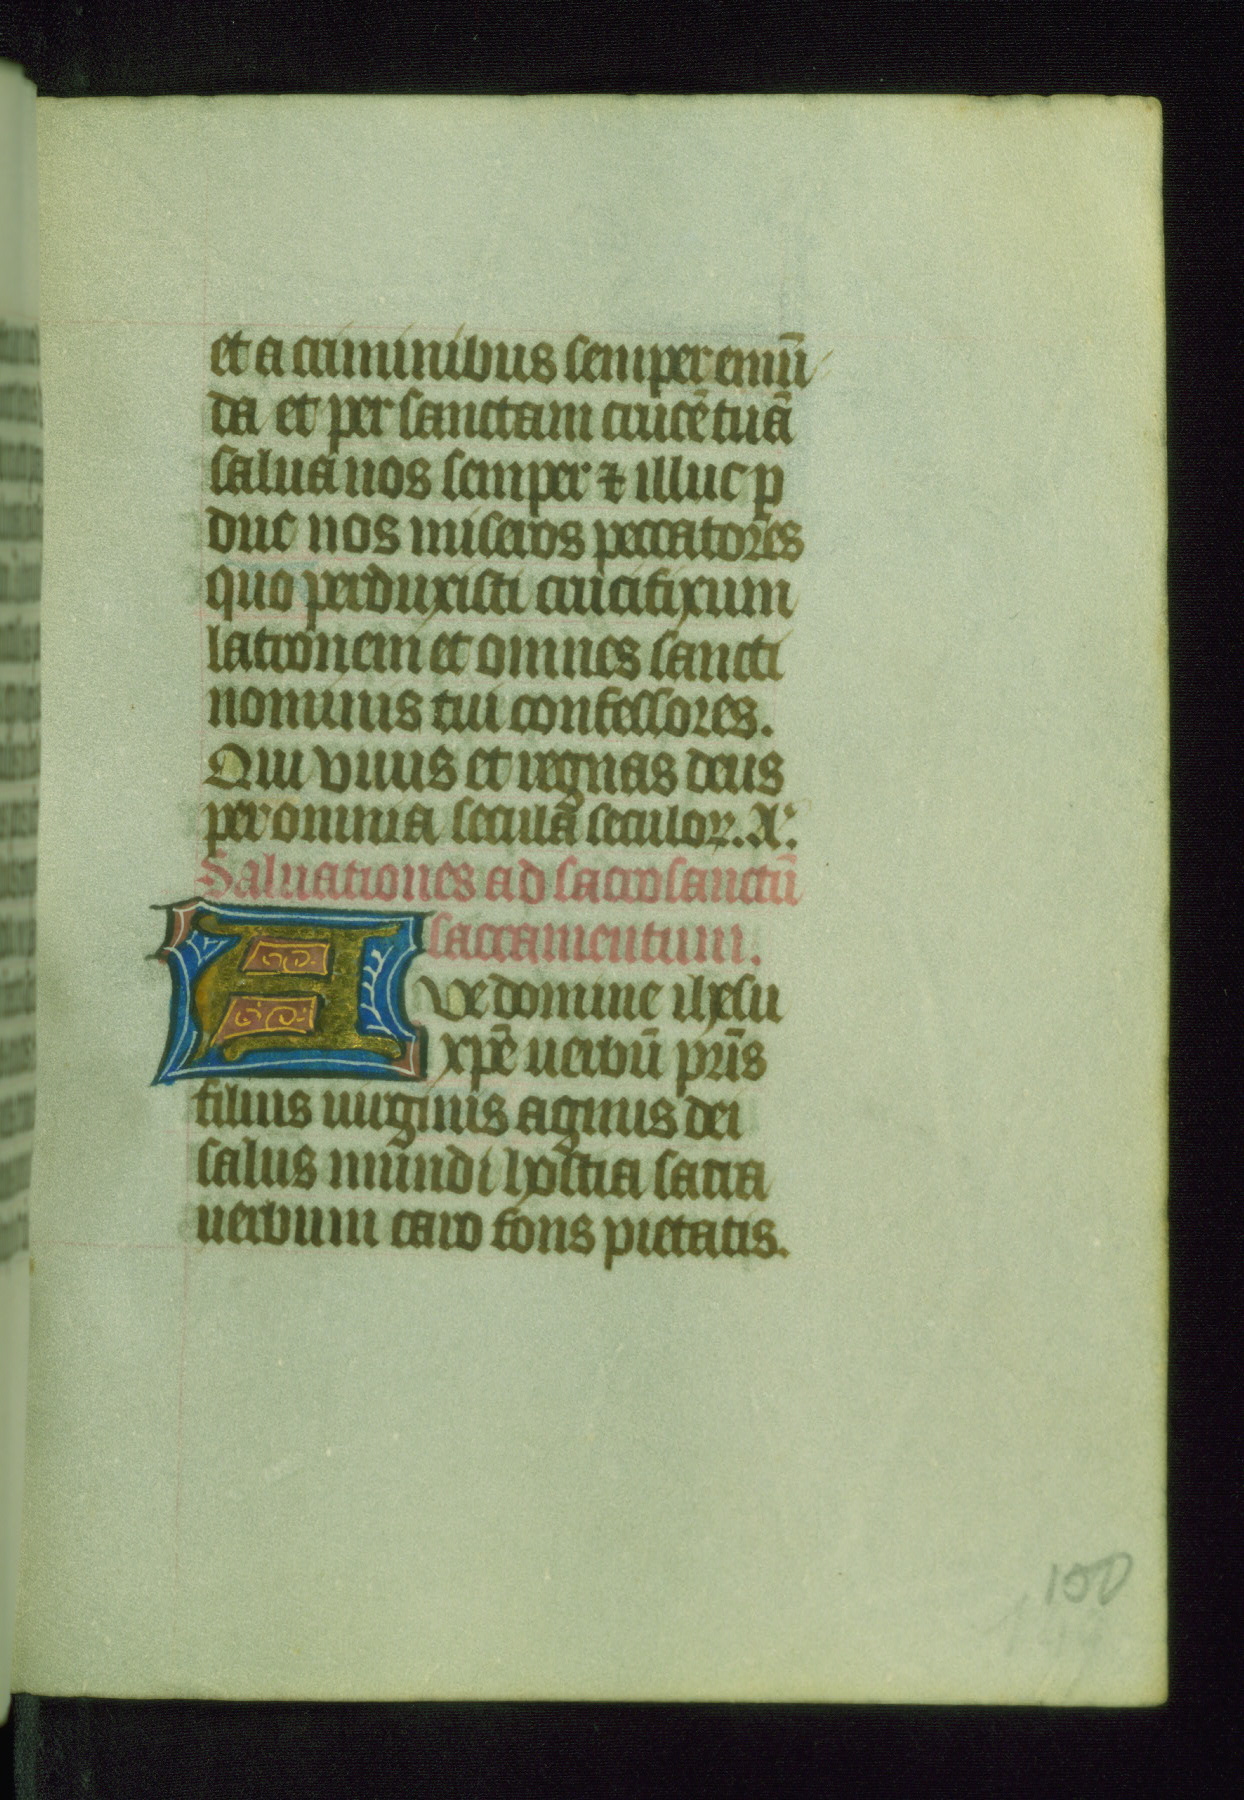 et a criminibus semper emū
da et per sanctam crucē tuā
salua nos semper ⁊ illuc ꝑ
duc nos miseros peccatores
quo perduxisti crucifixum
latronem et omnes sancti
nominis tui confessores.
Qui viuis et regnas deus
per omnia secula seculoꝝ. A.
Saluationes ad sacrosanctū
sacramentum.
Ave domine ihesu
xpē uerbū pr̄is
filius uirginis agnus dei
salus mundi hostia sacra
uerbum caro fons pietatis.
100